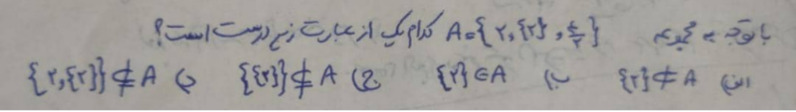 با توجه به مجموعه A = {۲, {۲}, ۴/۲} کدام یک از عبارت زیر درست است؟
الف) {۲} ⊄ A ب) {۲} ∈ A ج) {{۲}} ⊄ A د) {۲, {۲}} ⊄ A